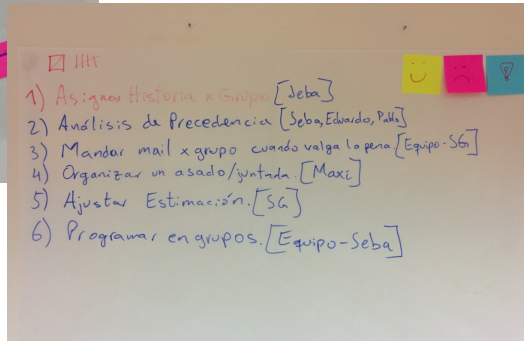 1) Asignar Historia x Grupo [Seba]
2) Análisis de Precedencia [Seba, Eduardo, Pablo]
3) Mandar mail x grupo cuando valga la pena. [Equipo-SG]
4) Organizar un asado/juntada. [Maxi]
5) Ajustar Estimación. [SG]
6) Programar en grupos. [Equipo-Seba]